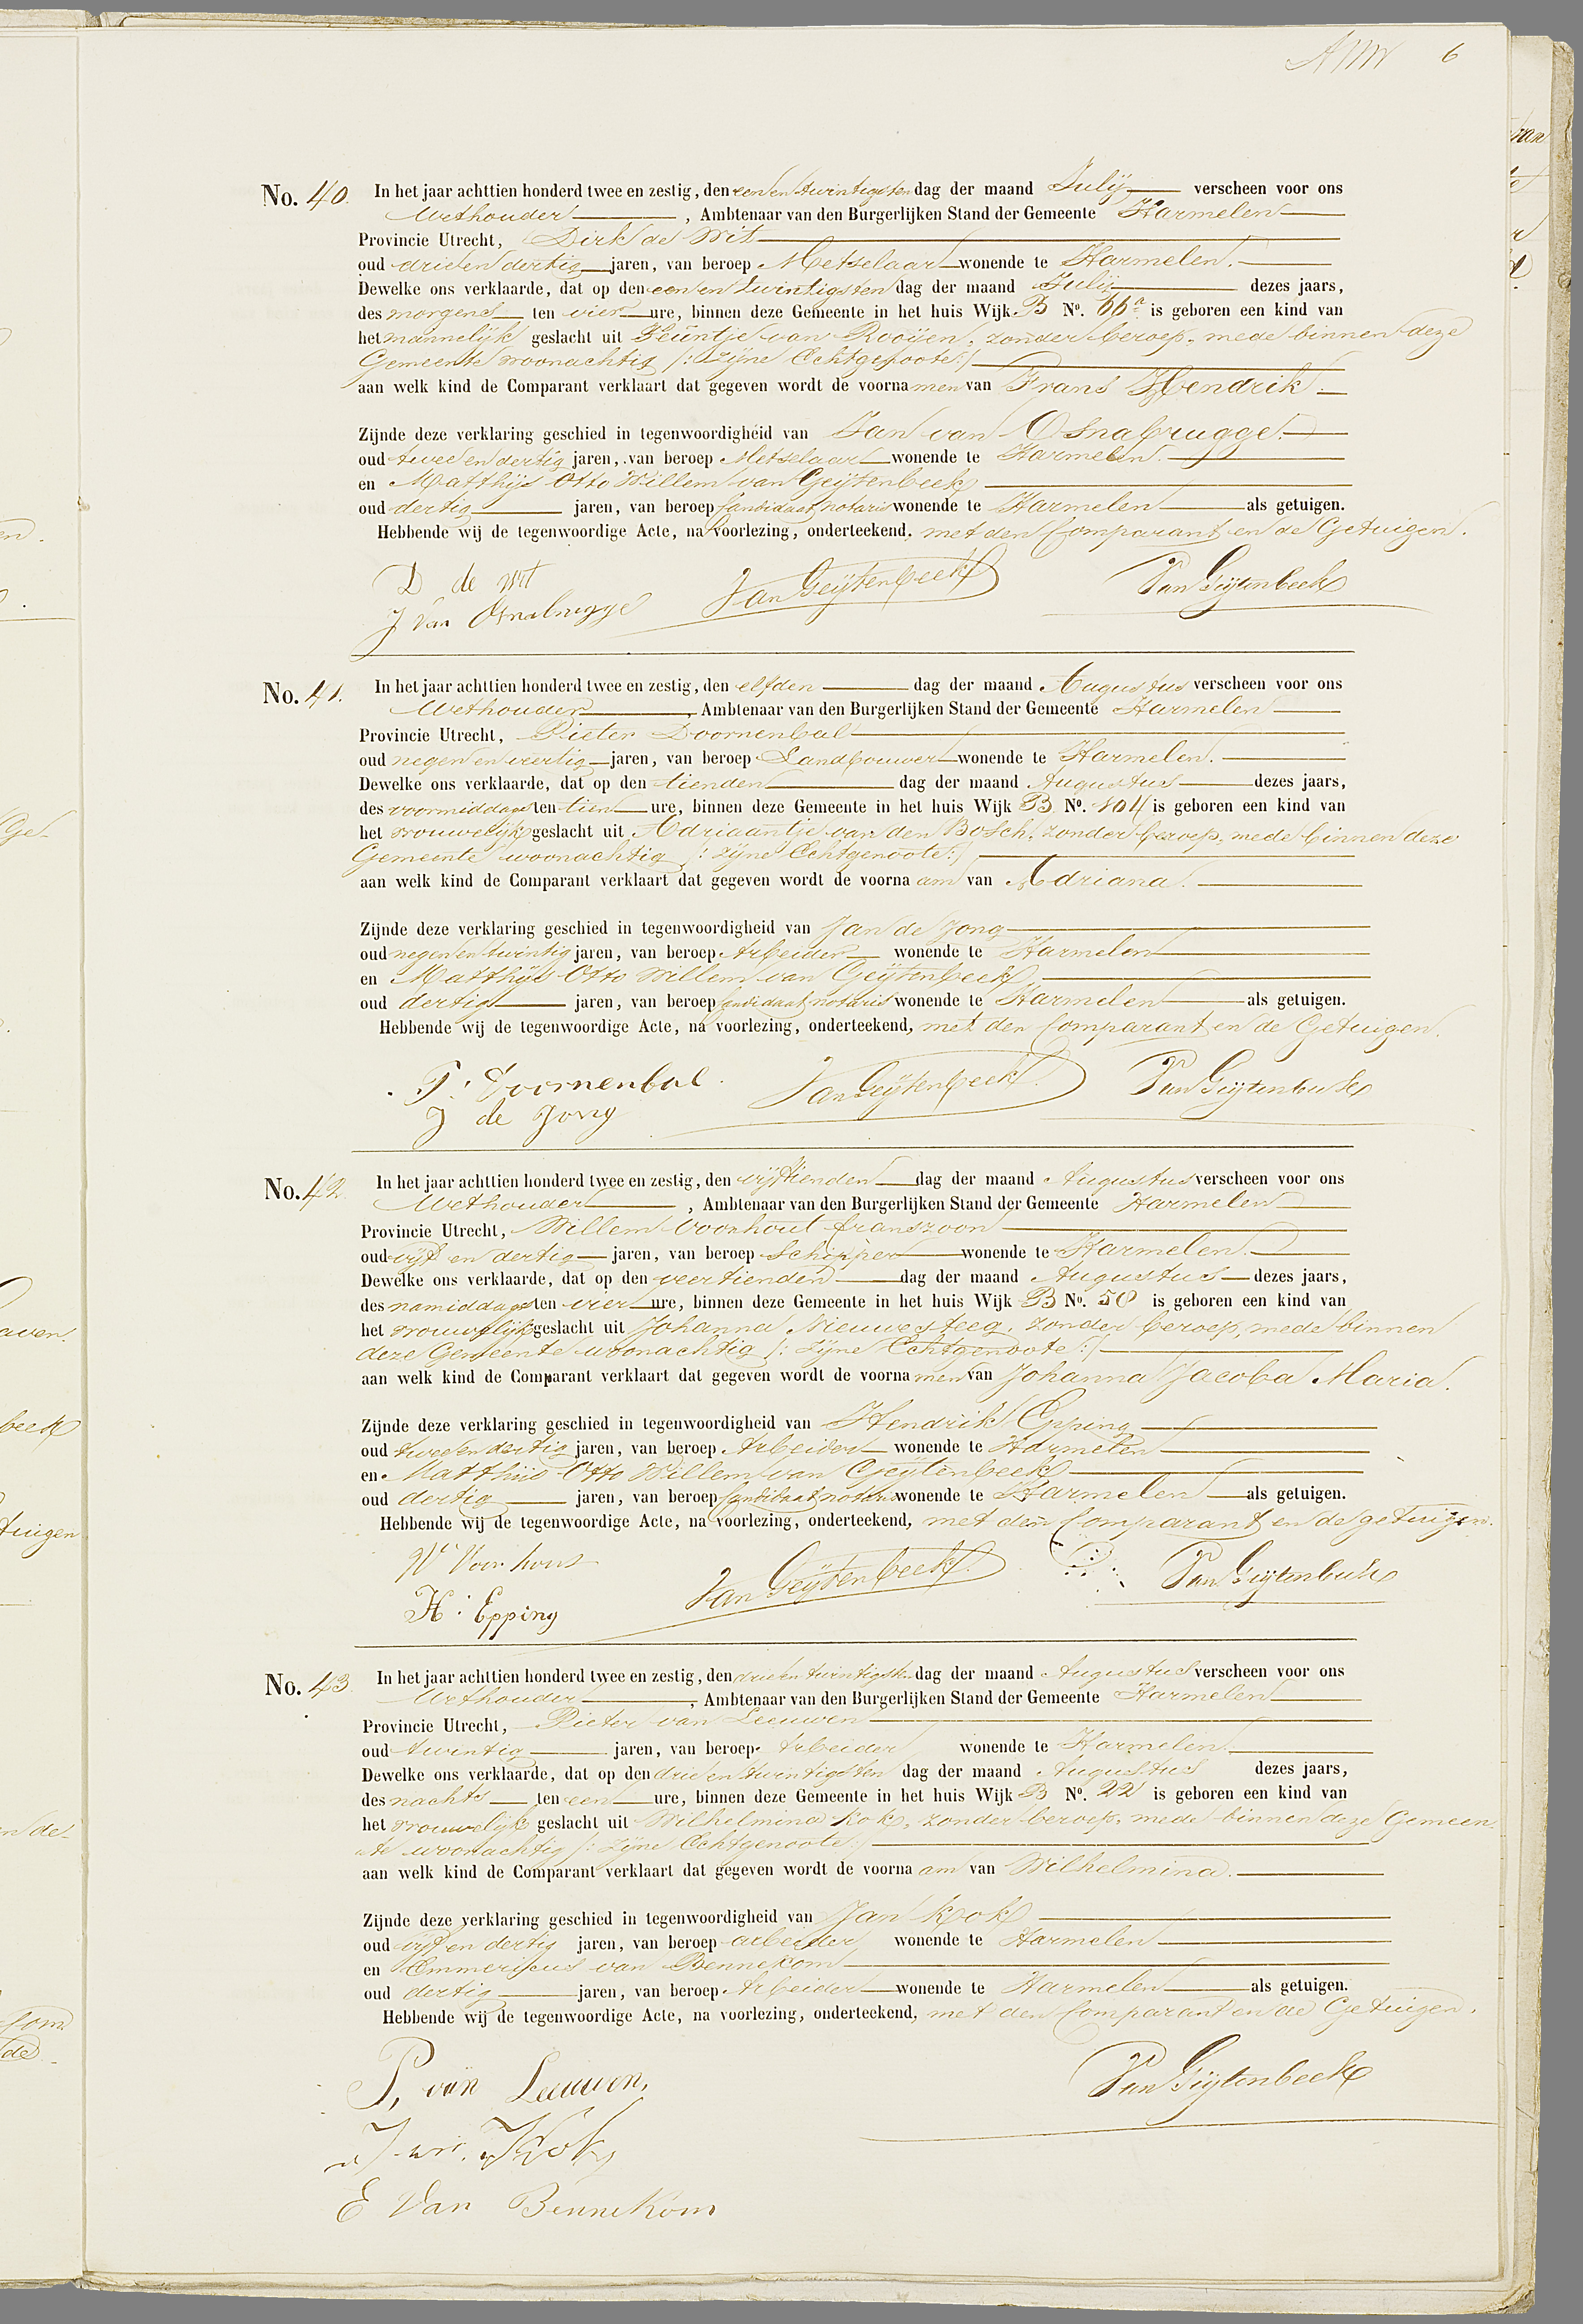 6
No. 40. In het jaar achttien honderd twee en zestig, den een en twintigsten dag der maand Julij verscheen voor ons
Wethouder, Ambtenaar van den Burgerlijken Stand der Gemeente Harmelen
Provincie Utrecht, Dirk de Wit
oud drie en dertig jaren, van beroep Metselaar wonende te Harmelen.
Dewelke ons verklaarde, dat op den een en twintigsten dag der maand Julij dezes jaars,
des morgens ten vier ure, binnen deze Gemeente in het huis Wijk B No. 66a is geboren een kind van
het mannelijk geslacht uit Teuntje van Rooijen, zonder beroep, mede binnen deze
Gemeente woonachtig /: zijne Echtgenoote :/
aan welk kind de Comparant verklaart dat gegeven wordt de voornamen van Frans Hendrik.
Zijnde deze verklaring geschied in tegenwoordigheid van Jan van Osnabrugge.
oud twee en dertig jaren, van beroep Metselaar wonende te Harmelen.
en Matthijs Otto Willem van Geijtenbeek
oud dertig jaren, van beroep Candidaat notaris wonende te Harmelen als getuigen.
Hebbende wij de tegenwoordige Acte, na voorlezing, onderteekend, met den Comparant en de Getuigen.
D de Wit VanGeijtenbeek Van Geijtenbeek
J van Osnabrugge
No. 41. In het jaar achttien honderd twee en zestig, den elfden dag der maand Augustus verscheen voor ons
Wethouder, Ambtenaar van den Burgerlijken Stand der Gemeente Harmelen
Provincie Utrecht, Pieter Doornenbal
oud negen en veertig jaren, van beroep Landbouwer wonende te Harmelen.
Dewelke ons verklaarde, dat op den tienden dag der maand Augustus dezes jaars,
des voormiddags ten tien ure, binnen deze Gemeente in het huis Wijk B No. 104 is geboren een kind van
het vrouwelijk geslacht uit Adriaantje van den Bosch, zonder beroep, mede binnen deze
Gemeente woonachtig /: zijne Echtgenoote :/
aan welk kind de Comparant verklaart dat gegeven wordt de voornaam van Adriana.
Zijnde deze verklaring geschied in tegenwoordigheid van Jan de Jong
oud negen en twintig jaren, van beroep Arbeider wonende te Harmelen
en Matthijs Otto Willem van Geijtenbeek
oud dertig jaren, van beroep Candidaat notaris wonende te Harmelen als getuigen.
Hebbende wij de tegenwoordige Acte, na voorlezing, onderteekend, met den Comparant en de Getuigen.
P: Doornenbal. VanGeijtenbeek. Van Geijtenbeek
J de Jong
No. 42. In het jaar achttien honderd twee en zestig, den vijftienden dag der maand Augustus verscheen voor ons
Wethouder, Ambtenaar van den Burgerlijken Stand der Gemeente Harmelen
Provincie Utrecht, Willem Voorhout Franszoon
oud vijf en dertig jaren, van beroep Schipper wonende te Harmelen.
Dewelke ons verklaarde, dat op den veertienden dag der maand Augustus dezes jaars,
des namiddags ten vier ure, binnen deze Gemeente in het huis Wijk B No. 50 is geboren een kind van
het vrouwelijk geslacht uit Johanna Nieuwesteeg, zonder beroep, mede binnen
deze Gemeente woonachtig /: zijne Echtgenoote :/
aan welk kind de Comparant verklaart dat gegeven wordt de voornamen van Johanna Jacoba Maria.
Zijnde deze verklaring geschied in tegenwoordigheid van Hendrik Epping
oud twee en dertig jaren, van beroep Arbeider wonende te Harmelen
en Matthijs Otto Willem van Geijtenbeek
oud dertig jaren, van beroep Candidaat notaris wonende te Harmelen als getuigen.
Hebbende wij de tegenwoordige Acte, na voorlezing, onderteekend, met den Comparant en de getuigen.
Wm Voorhout VanGeijtenbeek. Van Geijtenbeek
H: Epping
No. 43. In het jaar achttien honderd twee en zestig, den drie en twintigsten dag der maand Augustus verscheen voor ons
Wethouder, Ambtenaar van den Burgerlijken Stand der Gemeente Harmelen
Provincie Utrecht, Pieter van Leeuwen
oud twintig jaren, van beroep Arbeider wonende te Harmelen
Dewelke ons verklaarde, dat op den drie en twintigsten dag der maand Augustus dezes jaars,
des nachts ten een ure, binnen deze Gemeente in het huis Wijk B No. 22 is geboren een kind van
het vrouwelijk geslacht uit Wilhelmina Kok, zonder beroep, mede binnen deze Gemeen
te woonachtig /: zijne Echtgenoote :/
aan welk kind de Comparant verklaart dat gegeven wordt de voornaam van Wilhelmina.
Zijnde deze verklaring geschied in tegenwoordigheid van Jan Kok
oud vijf en dertig jaren, van beroep arbeider wonende te Harmelen
en Emmericus van Bennekom
oud dertig jaren, van beroep Arbeider wonende te Harmelen als getuigen.
Hebbende wij de tegenwoordige Acte, na voorlezing, onderteekend, met den Comparant en de Getuigen.
P, van Leeuwen, Van Geijtenbeek
Kok
E Van Bennekom